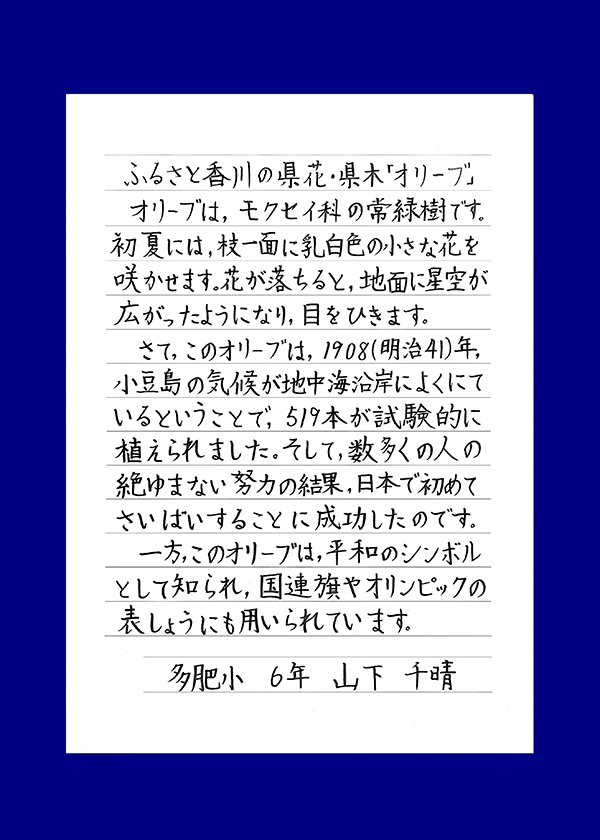 ふるさと香川の県花・県木「オリーブ」
オリーブは，モクセイ科の常緑樹です。
初夏には，枝一面に乳白色の小さな花を
咲かせます。花が落ちると，地面に星空が
広がったようになり，目をひきます。
さて，このオリーブは，1908(明治41)年，
小豆島の気候が地中海沿岸によくにて
いるということで，519本が試験的に
植えられました。そして，数多くの人の
絶ゆまない努力の結果，日本で初めて
さいばいすることに成功したのです。
一方，このオリーブは，平和のシンボル
として知られ，国連旗やオリンピックの
表しょうにも用いられています。
多肥小 6年 山下 千晴